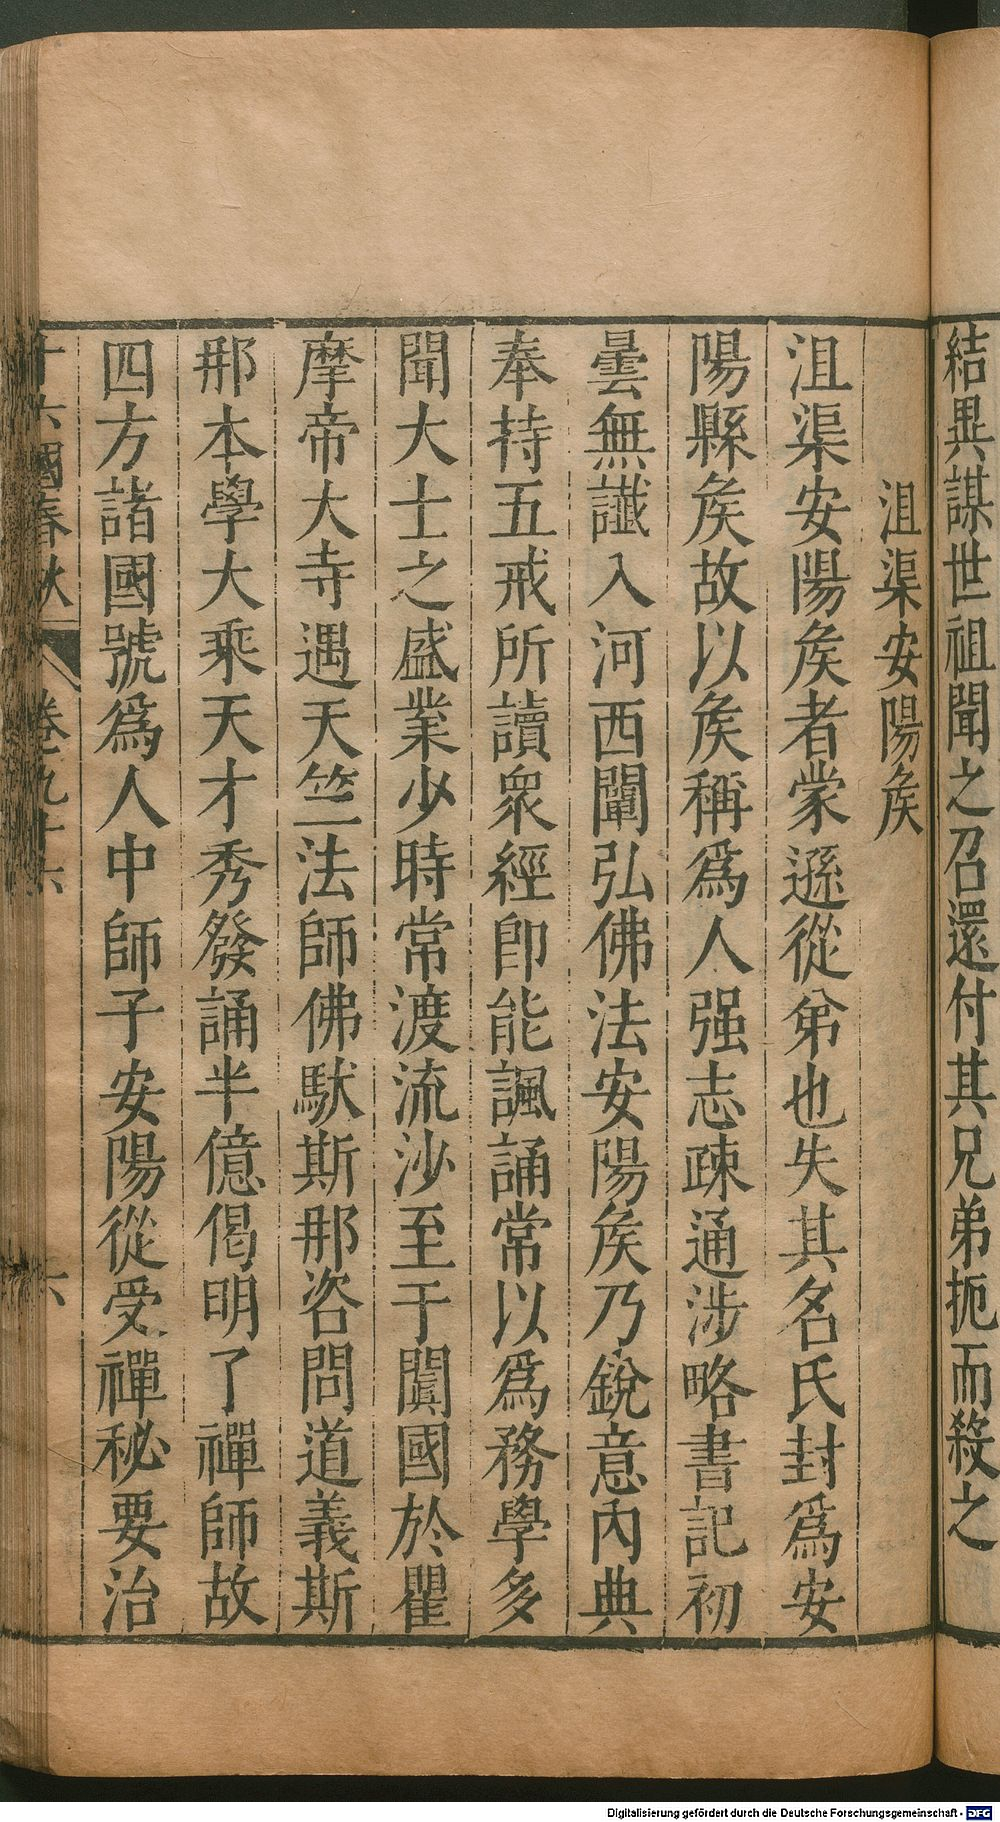 結異謀世祖聞之召還付其兄弟扼而殺之
沮渠安陽矦
沮渠安陽矦者蒙遜從弟也失其名氏封爲安
陽縣矦故以矦稱爲人强志疎通涉略書記初
曇無讖入河西闡弘佛法安陽矦乃銳意內典
奉持五戒所讀衆經卽能諷誦常以爲務學多
聞大士之盛業少時常渡流沙至于闐國於瞿
摩帝大寺遇天竺法師佛馱斯那咨問道義斯
那本學大乘天才秀發誦半億偈明了禪師故
四方諸國號爲人中師子安陽從受禪秘要治
十六國春秋 卷九十六 六
Digitalisierung gefördert durch die Deutsche Forschungsgemeinschaft - DFG